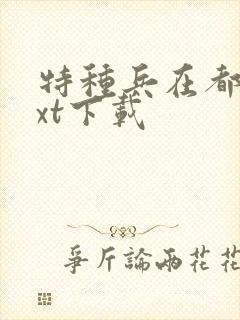 特種兵在都
xt下載
爭斤論兩花花